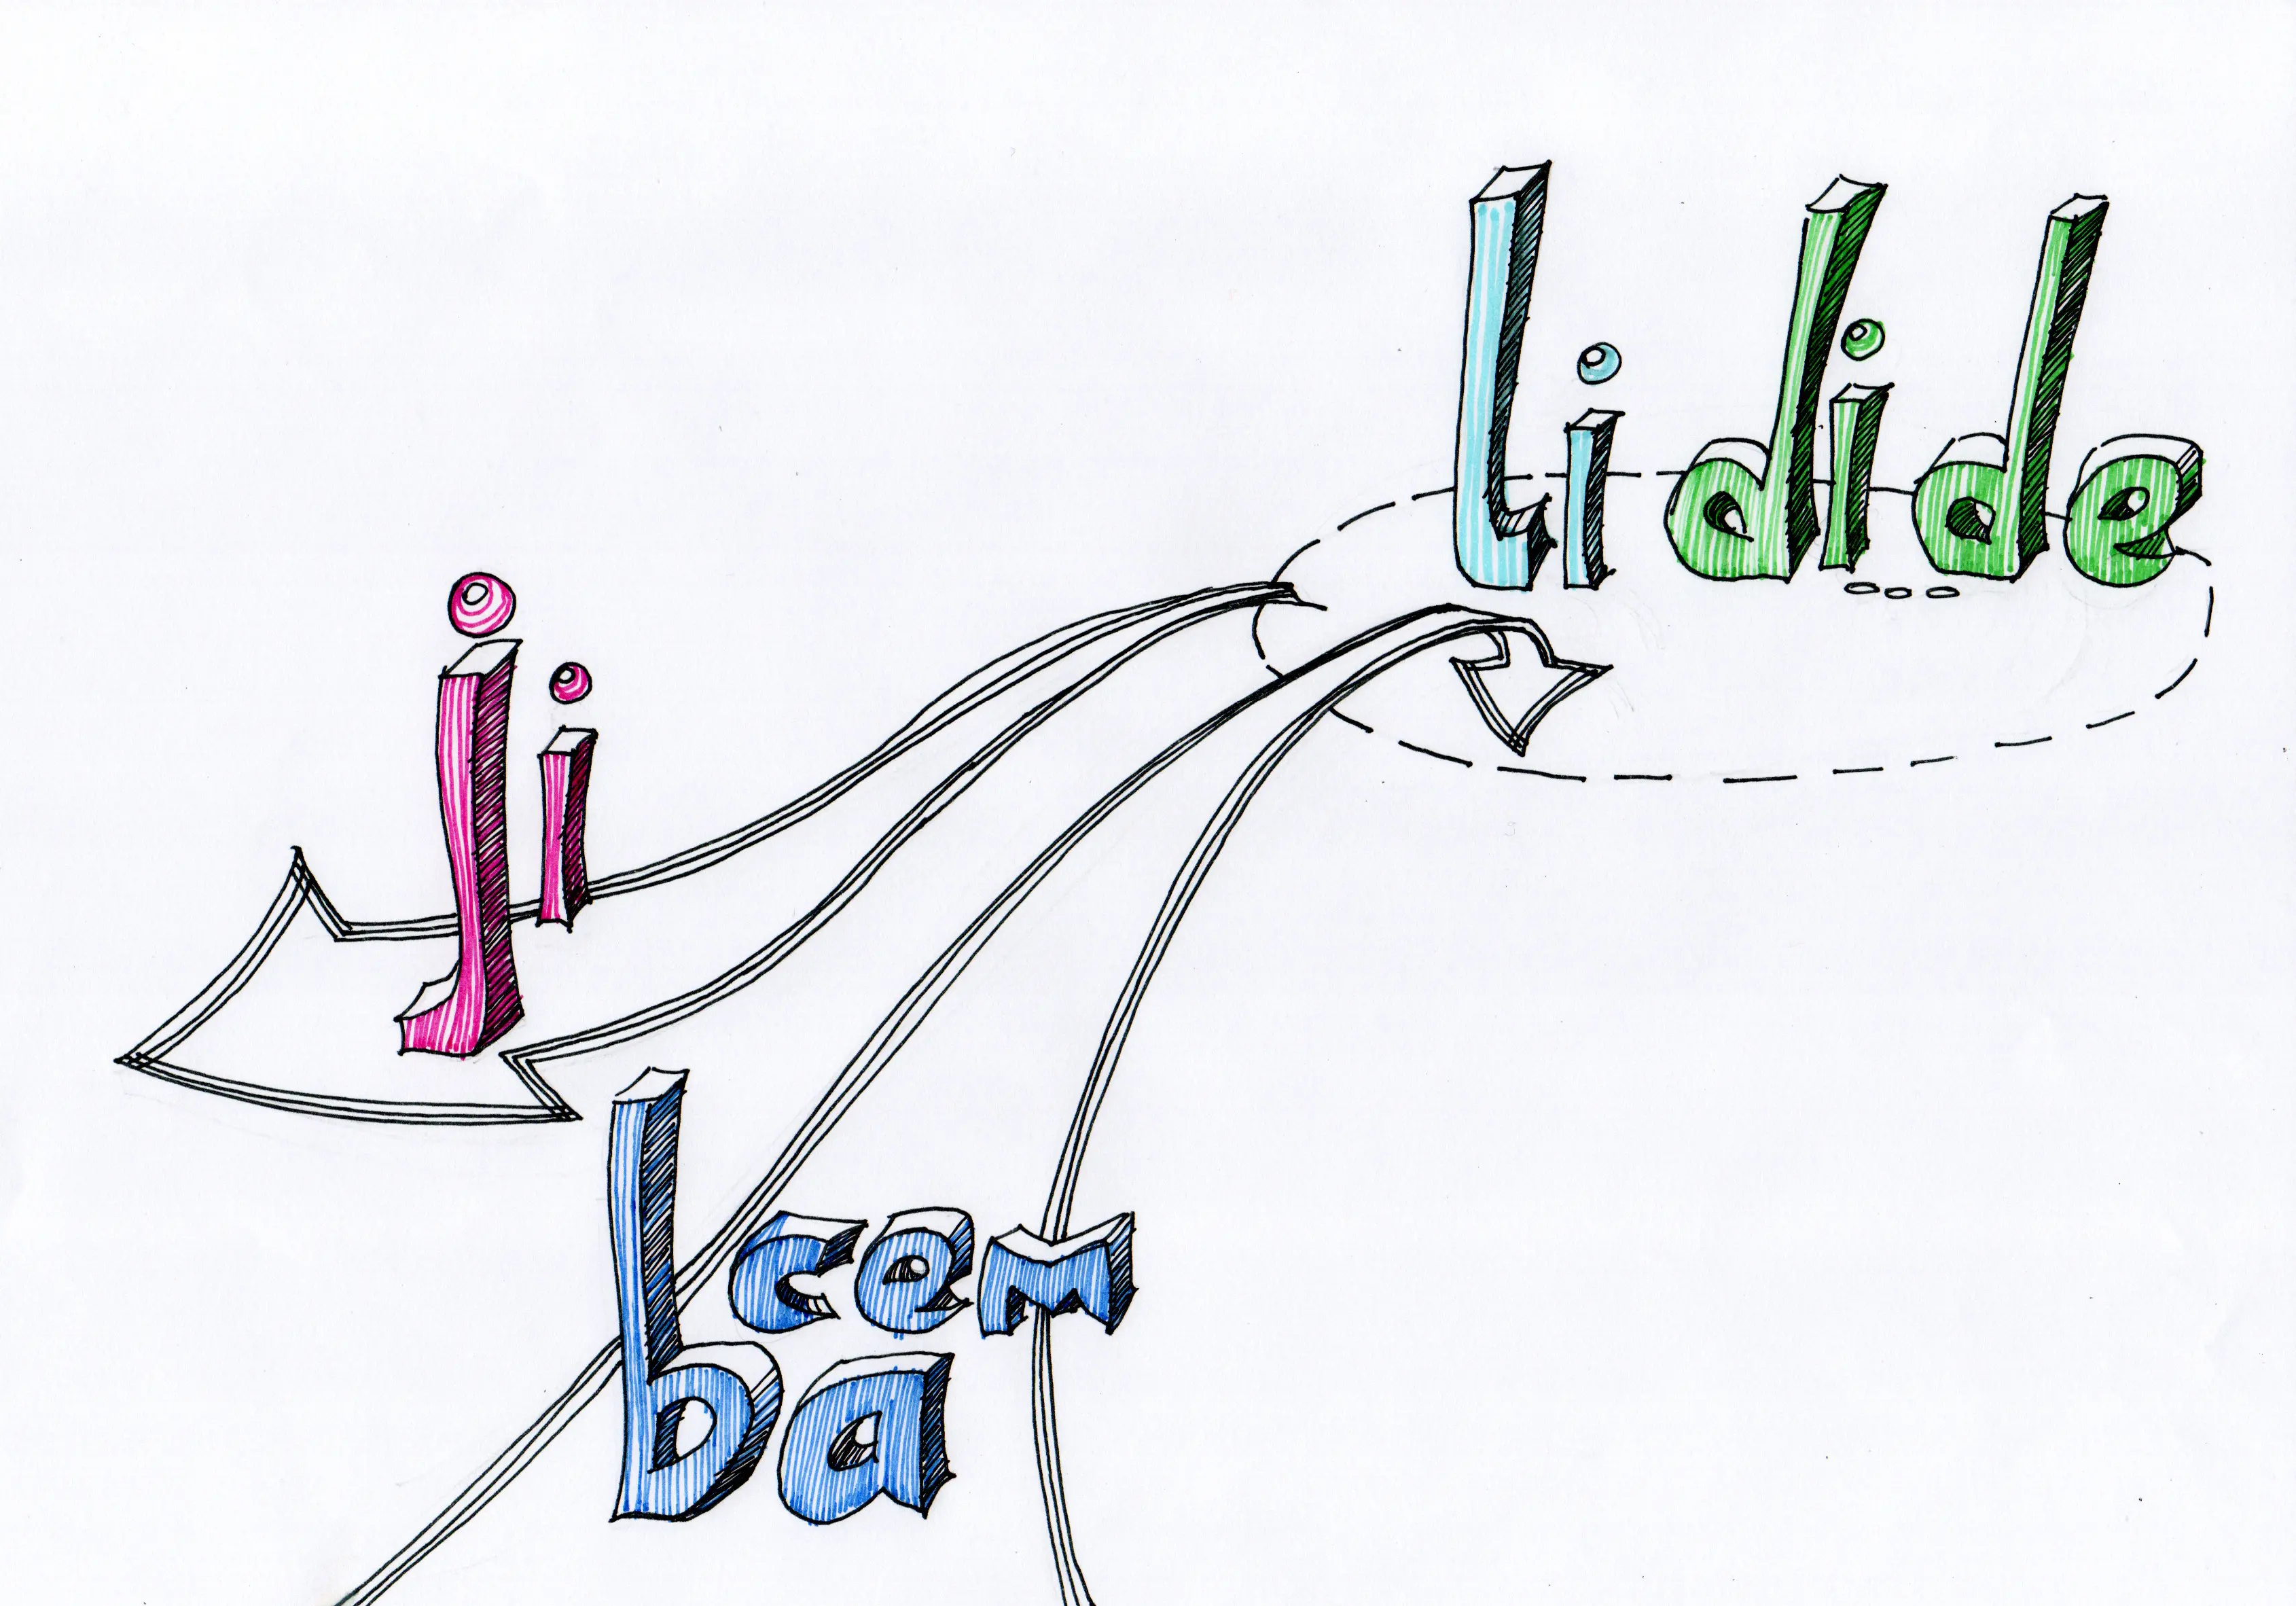 lidide
ji
bcem
ba